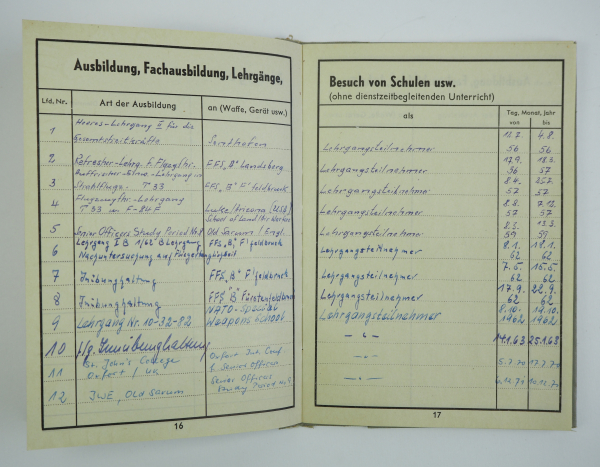 Ausbildung, Fachausbildung, Lehrgänge,
Lfd. Nr. Art der Ausbildung an (Waffe, Gerät usw.)
1 Heeres-Lehrgang II für die
Gesamtstreitkräfte Sonthofen
2 Refresher-Lehrg. f. Flugzgf. FFS "B" Landsberg
3 Strahlflugz. T 33 FFS "B" F'feldbruck
4 Flugzeugführ-Lehrgang
T 33 u. F-84F Luke/Arizona (USA)
School of Land/Air Warfare
5 Senior Officers Study Period No. 8 Old Sarum / Engl.
6 Lehrgang I B 1/62 B Lehrgang FFS "B" F'feldbruck
Nachuntersuchung auf Flugertauglichkeit
7 Inübunghaltung FFS "B" F'feldbruck
8 Inübunghaltung FFS "B" Fürstenfeldbruck
9 Lehrgang Nr. 10-32-82 NATO-Special
Weapons School
10 f/g. Inübunghaltung
11 St. John's College
Oxfort / UK Oxfort Int. Conf.
f. Senior Officers
12 JWE, Old Sarum Senior Officers
Study Period
16
Besuch von Schulen usw.
(ohne dienstzeitbegleitenden Unterricht)
als Tag, Monat, Jahr
von bis
4.8.
Lehrgangsteilnehmer 56 56
17.9. 18.3.
Lehrgangsteilnehmer 36 57
8.4. 25.7.
Lehrgangsteilnehmer 57 57
8.8. 7.12.
Lehrgangsteilnehmer 57 57
2.3. 13.3.
Lehrgangsteilnehmer 59 59
8.1. 18.1.
Lehrgangsteilnehmer 62 62
7.5. 16.5.
Lehrgangsteilnehmer 62 62
17.9. 22.9.
Lehrgangsteilnehmer 62 62
8.10. 19.10.
Lehrgangsteilnehmer 1962 1962
- " - 14.1.63 25.1.63
- " - 5.7.70 17.7.70
- " -
17